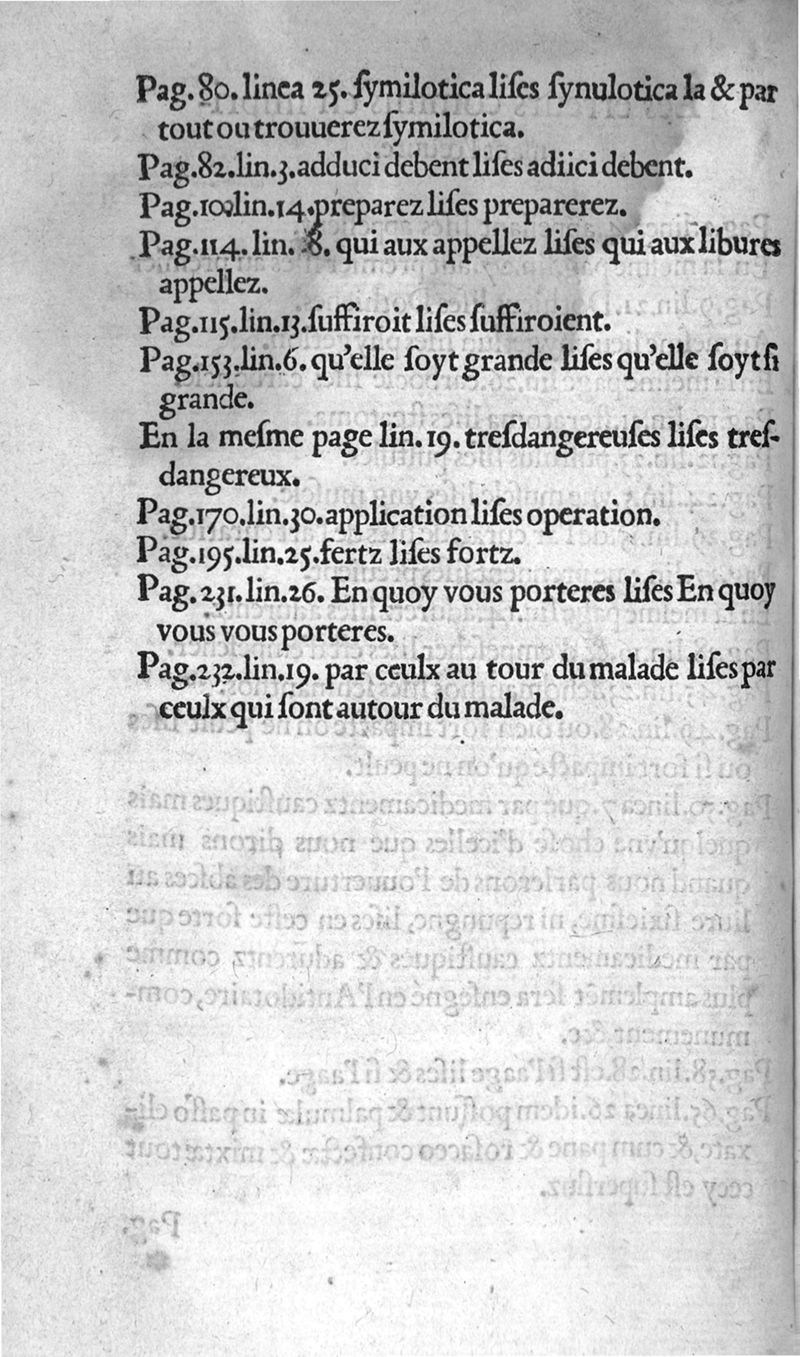 Pag. 80. linea 25. ſymilotica liſes ſynulotica la & par
tout ou trouuerez ſymilotica.
Pag.82.lin.3.adduci debent liſes adiici debent.
Pag.109.lin.14.preparez liſes preparerez.
Pag.114. lin. 8. qui aux appellez liſes qui aux libures
appellez.
Pag.115.lin.13.ſuffiroit liſes ſuffiroient.
Pag.153.lin.6. qu'elle ſoyt grande liſes qu'elle ſoyt ſi
grande.
En la meſme page lin. 19. treſdangereuſes liſes treſ-
dangereux.
Pag.170.lin.30.application liſes operation.
Pag.195.lin.25.fertz liſes fortz.
Pag. 231. lin.26. En quoy vous porteres liſes En quoy
vous vous porteres.
Pag.232.lin.19. par ceulx au tour du malade liſes par
ceulx qui ſont autour du malade.